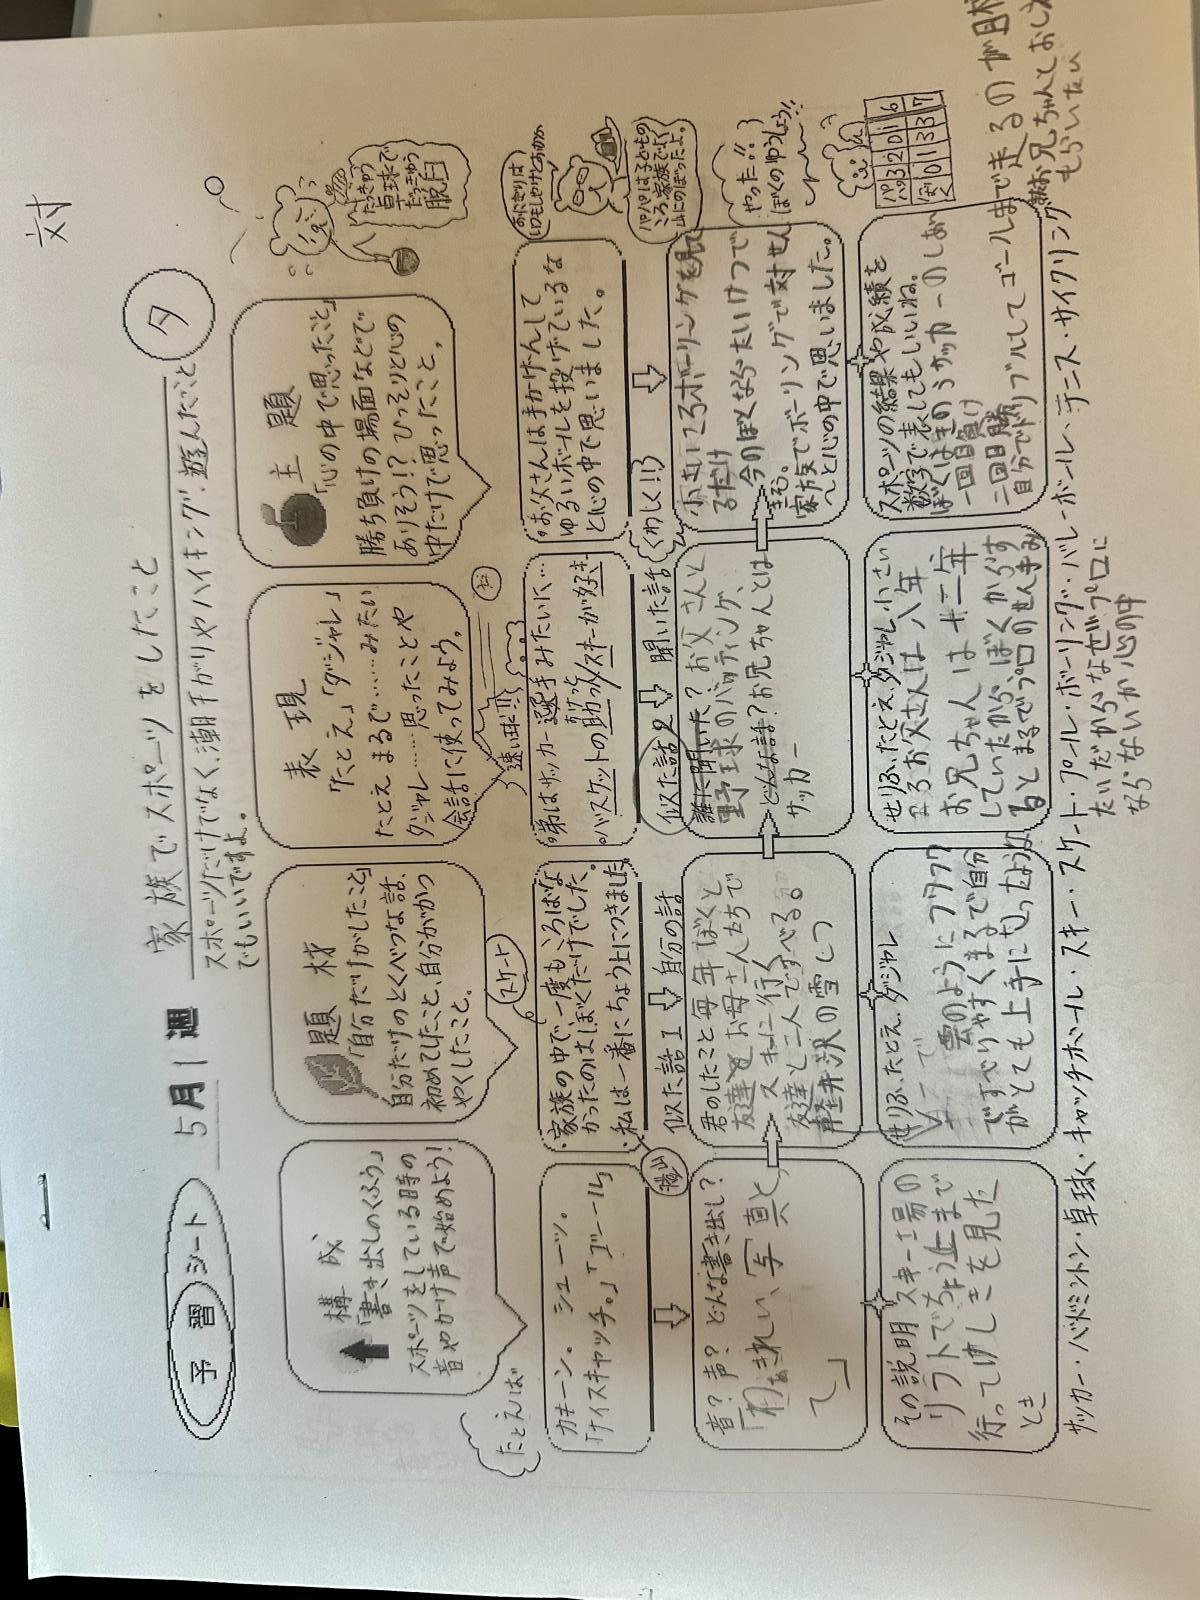 対
予習シート
5月1週
家族でスポーツをしたこと
スポーツだけでなく、潮干がりやハイキング、遊んだこと
でもいいですよ。
タ
構成
「書き出しのくふう」
スポーツをしている時の
音やかけ声で始めよう!
題材
「自分だけがしたこと」
自分だけのとくべつな話、
初めてしたこと、自分がかつ
やくしたこと。
表現
「たとえ」「ダジャレ」
たとえ まるで……みたい
ダジャレ……思ったことや
会話に使ってみよう。
主題
「心の中で思ったこと」
勝ち負けの場面などで
ありそう!?ひっそりと心の
中だけで思ったこと。
たっきゅう
卓球で
だっきゅう
脱臼
たとえば
カキーン。シューッ。
「ナイスキャッチ。」「ゴール」
スケート
・家族の中で、一度もころばな
かったのはぼくだけでした。
・私は一番にちょう上につきました。
登山
速い球!!!
。弟はサッカー選手みたいに…
。バスケットの助っスキーが好き
。お父さんは手かげんして
ゆるいボールを投げているな
と心の中で思いました。
おにぎりは
いつもしゃけとおかか
似た話1
自分の話
似た話2
聞いた話
くわしく!!!
パパは子どもの
ころ、家族でよく
山にのぼったよ。
音?声?どんな書き出し?
「わぁきれい、写真と
て」
君のしたこと 毎年ぼくと
友達とお母さん人たちで
スキーに行く
友達と二人ですべる。
軽井沢の雪し
誰に聞いた?お父さんと
野球のバッティング、
どんな話?お兄ちゃんとは
サッカー
るだけ
今のぼくならたいけつで
きる。
家族でボーリングで対せん
へと心の中で思いました。
やった!!
ぼくのゆうしょう!!
その説明 スキー場の
リフトでちょう上まで
行ってけしきを見た
とき
せりふ、たとえ、ダジャレ
雲のようにフワフワ
ですべりやすくまるで自分
がとても上手になったような
せりふ、たとえ、ダジャレ 小さい
ころお父さんは八年
お兄ちゃんは十二年
していたから、ぼくからす
るとまるでプロのせん手み
たいだからなぜプロに
ならないか心の中
スポーツの結果や成績を
数字で表してもいいね。
一回負け
二回勝
自分でドリブルしてゴールまで走るのが目
お兄ちゃんとおしえ
もらいたい
パパ 3 2 0 1 6
僕 0 1 3 3 7
サッカー・バドミントン・卓球・キャッチボール・スキー・スケート・プール・ボーリング・バレーボール・テニス・サイクリング